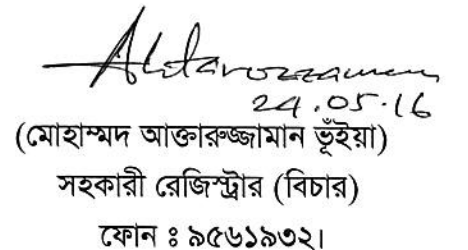 Aktaruzzaman
24.05.16
(মোহাম্মদ আক্তারুজ্জামান ভূঁইয়া)
সহকারী রেজিস্ট্রার (বিচার)
ফোন ঃ ৯৫৬১৯৩২।